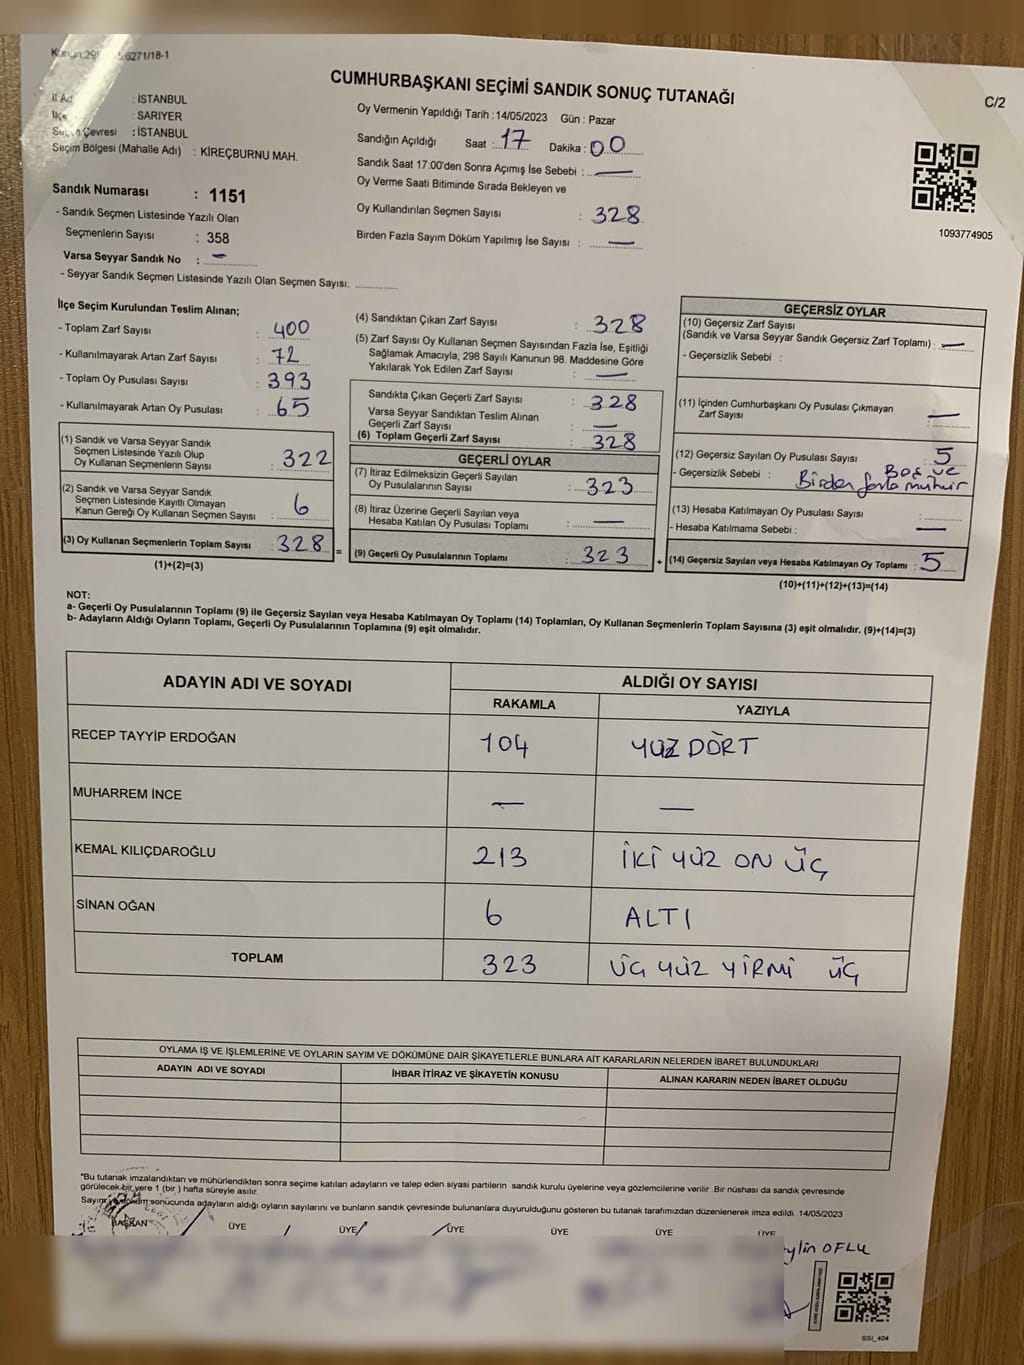 6271/18-1
CUMHURBAŞKANI SEÇİMİ SANDIK SONUÇ TUTANAĞI
C/2
: İSTANBUL
: SARIYER
Çevresi : İSTANBUL
Seçim Bölgesi (Mahalle Adı) : KİREÇBURNU MAH.
Oy Vermenin Yapıldığı Tarih : 14/05/2023 Gün : Pazar
Sandığın Açıldığı Saat : 17 Dakika : 00
Sandık Saat 17:00'den Sonra Açımış İse Sebebi : —
Oy Verme Saati Bitiminde Sırada Bekleyen ve
Oy Kullandırılan Seçmen Sayısı : 328
Birden Fazla Sayım Döküm Yapılmış İse Sayısı : —
1093774905
Sandık Numarası : 1151
- Sandık Seçmen Listesinde Yazılı Olan
Seçmenlerin Sayısı : 358
Varsa Seyyar Sandık No : —
- Seyyar Sandık Seçmen Listesinde Yazılı Olan Seçmen Sayısı:
İlçe Seçim Kurulundan Teslim Alınan;
- Toplam Zarf Sayısı : 400
- Kullanılmayarak Artan Zarf Sayısı : 72
- Toplam Oy Pusulası Sayısı : 393
- Kullanılmayarak Artan Oy Pusulası : 65
(1) Sandık ve Varsa Seyyar Sandık
Seçmen Listesinde Yazılı Olup
Oy Kullanan Seçmenlerin Sayısı : 322
(2) Sandık ve Varsa Seyyar Sandık
Seçmen Listesinde Kayıtlı Olmayan
Kanun Gereği Oy Kullanan Seçmen Sayısı : 6
(3) Oy Kullanan Seçmenlerin Toplam Sayısı : 328 =
(1)+(2)=(3)
(4) Sandıktan Çıkan Zarf Sayısı : 328
(5) Zarf Sayısı Oy Kullanan Seçmen Sayısından Fazla İse, Eşitliği
Sağlamak Amacıyla; 298 Sayılı Kanunun 98. Maddesine Göre
Yakılarak Yok Edilen Zarf Sayısı : —
Sandıkta Çıkan Geçerli Zarf Sayısı : 328
Varsa Seyyar Sandıktan Teslim Alınan
Geçerli Zarf Sayısı : —
(6) Toplam Geçerli Zarf Sayısı : 328
GEÇERLİ OYLAR
(7) İtiraz Edilmeksizin Geçerli Sayılan
Oy Pusulalarının Sayısı : 323
(8) İtiraz Üzerine Geçerli Sayılan veya
Hesaba Katılan Oy Pusulası Toplamı : —
(9) Geçerli Oy Pusulalarının Toplamı : 323 +
GEÇERSİZ OYLAR
(10) Geçersiz Zarf Sayısı
(Sandık ve Varsa Seyyar Sandık Geçersiz Zarf Toplamı) : —
- Geçersizlik Sebebi :
(11) İçinden Cumhurbaşkanı Oy Pusulası Çıkmayan
Zarf Sayısı : —
(12) Geçersiz Sayılan Oy Pusulası Sayısı : 5
- Geçersizlik Sebebi : Boş ve
Birden fazla mühür
(13) Hesaba Katılmayan Oy Pusulası Sayısı :
- Hesaba Katılmama Sebebi : —
(14) Geçersiz Sayılan veya Hesaba Katılmayan Oy Toplamı : 5
(10)+(11)+(12)+(13)=(14)
NOT:
a- Geçerli Oy Pusulalarının Toplamı (9) ile Geçersiz Sayılan veya Hesaba Katılmayan Oy Toplamı (14) Toplamları, Oy Kullanan Seçmenlerin Toplam Sayısına (3) eşit olmalıdır. (9)+(14)=(3)
b- Adayların Aldığı Oyların Toplamı, Geçerli Oy Pusulalarının Toplamına (9) eşit olmalıdır.
ADAYIN ADI VE SOYADI
ALDIĞI OY SAYISI
RAKAMLA YAZIYLA
RECEP TAYYİP ERDOĞAN 104 YÜZ DÖRT
MUHARREM İNCE — —
KEMAL KILIÇDAROĞLU 213 İKİ YÜZ ON ÜÇ
SİNAN OĞAN 6 ALTI
TOPLAM 323 ÜÇ YÜZ YİRMİ ÜÇ
OYLAMA İŞ VE İŞLEMLERİNE VE OYLARIN SAYIM VE DÖKÜMÜNE DAİR ŞİKAYETLERLE BUNLARA AİT KARARLARIN NELERDEN İBARET BULUNDUKLARI
ADAYIN ADI VE SOYADI İHBAR İTİRAZ VE ŞİKAYETİN KONUSU ALINAN KARARIN NEDEN İBARET OLDUĞU
*Bu tutanak imzalandıktan ve mühürlendikten sonra seçime katılan adayların ve talep eden siyasi partilerin sandık kurulu üyelerine veya gözlemcilerine verilir .Bir nüshası da sandık çevresinde
görülecek bir yere 1 (bir ) hafta süreyle asılır.
Sayım döküm sonucunda adayların aldığı oyların sayılarını ve bunların sandık çevresinde bulunanlara duyurulduğunu gösteren bu tutanak tarafımızdan düzenlenerek imza edildi. 14/05/2023
BAŞKAN ÜYE ÜYE ÜYE ÜYE ÜYE ÜYE
OFLU
SSI_404